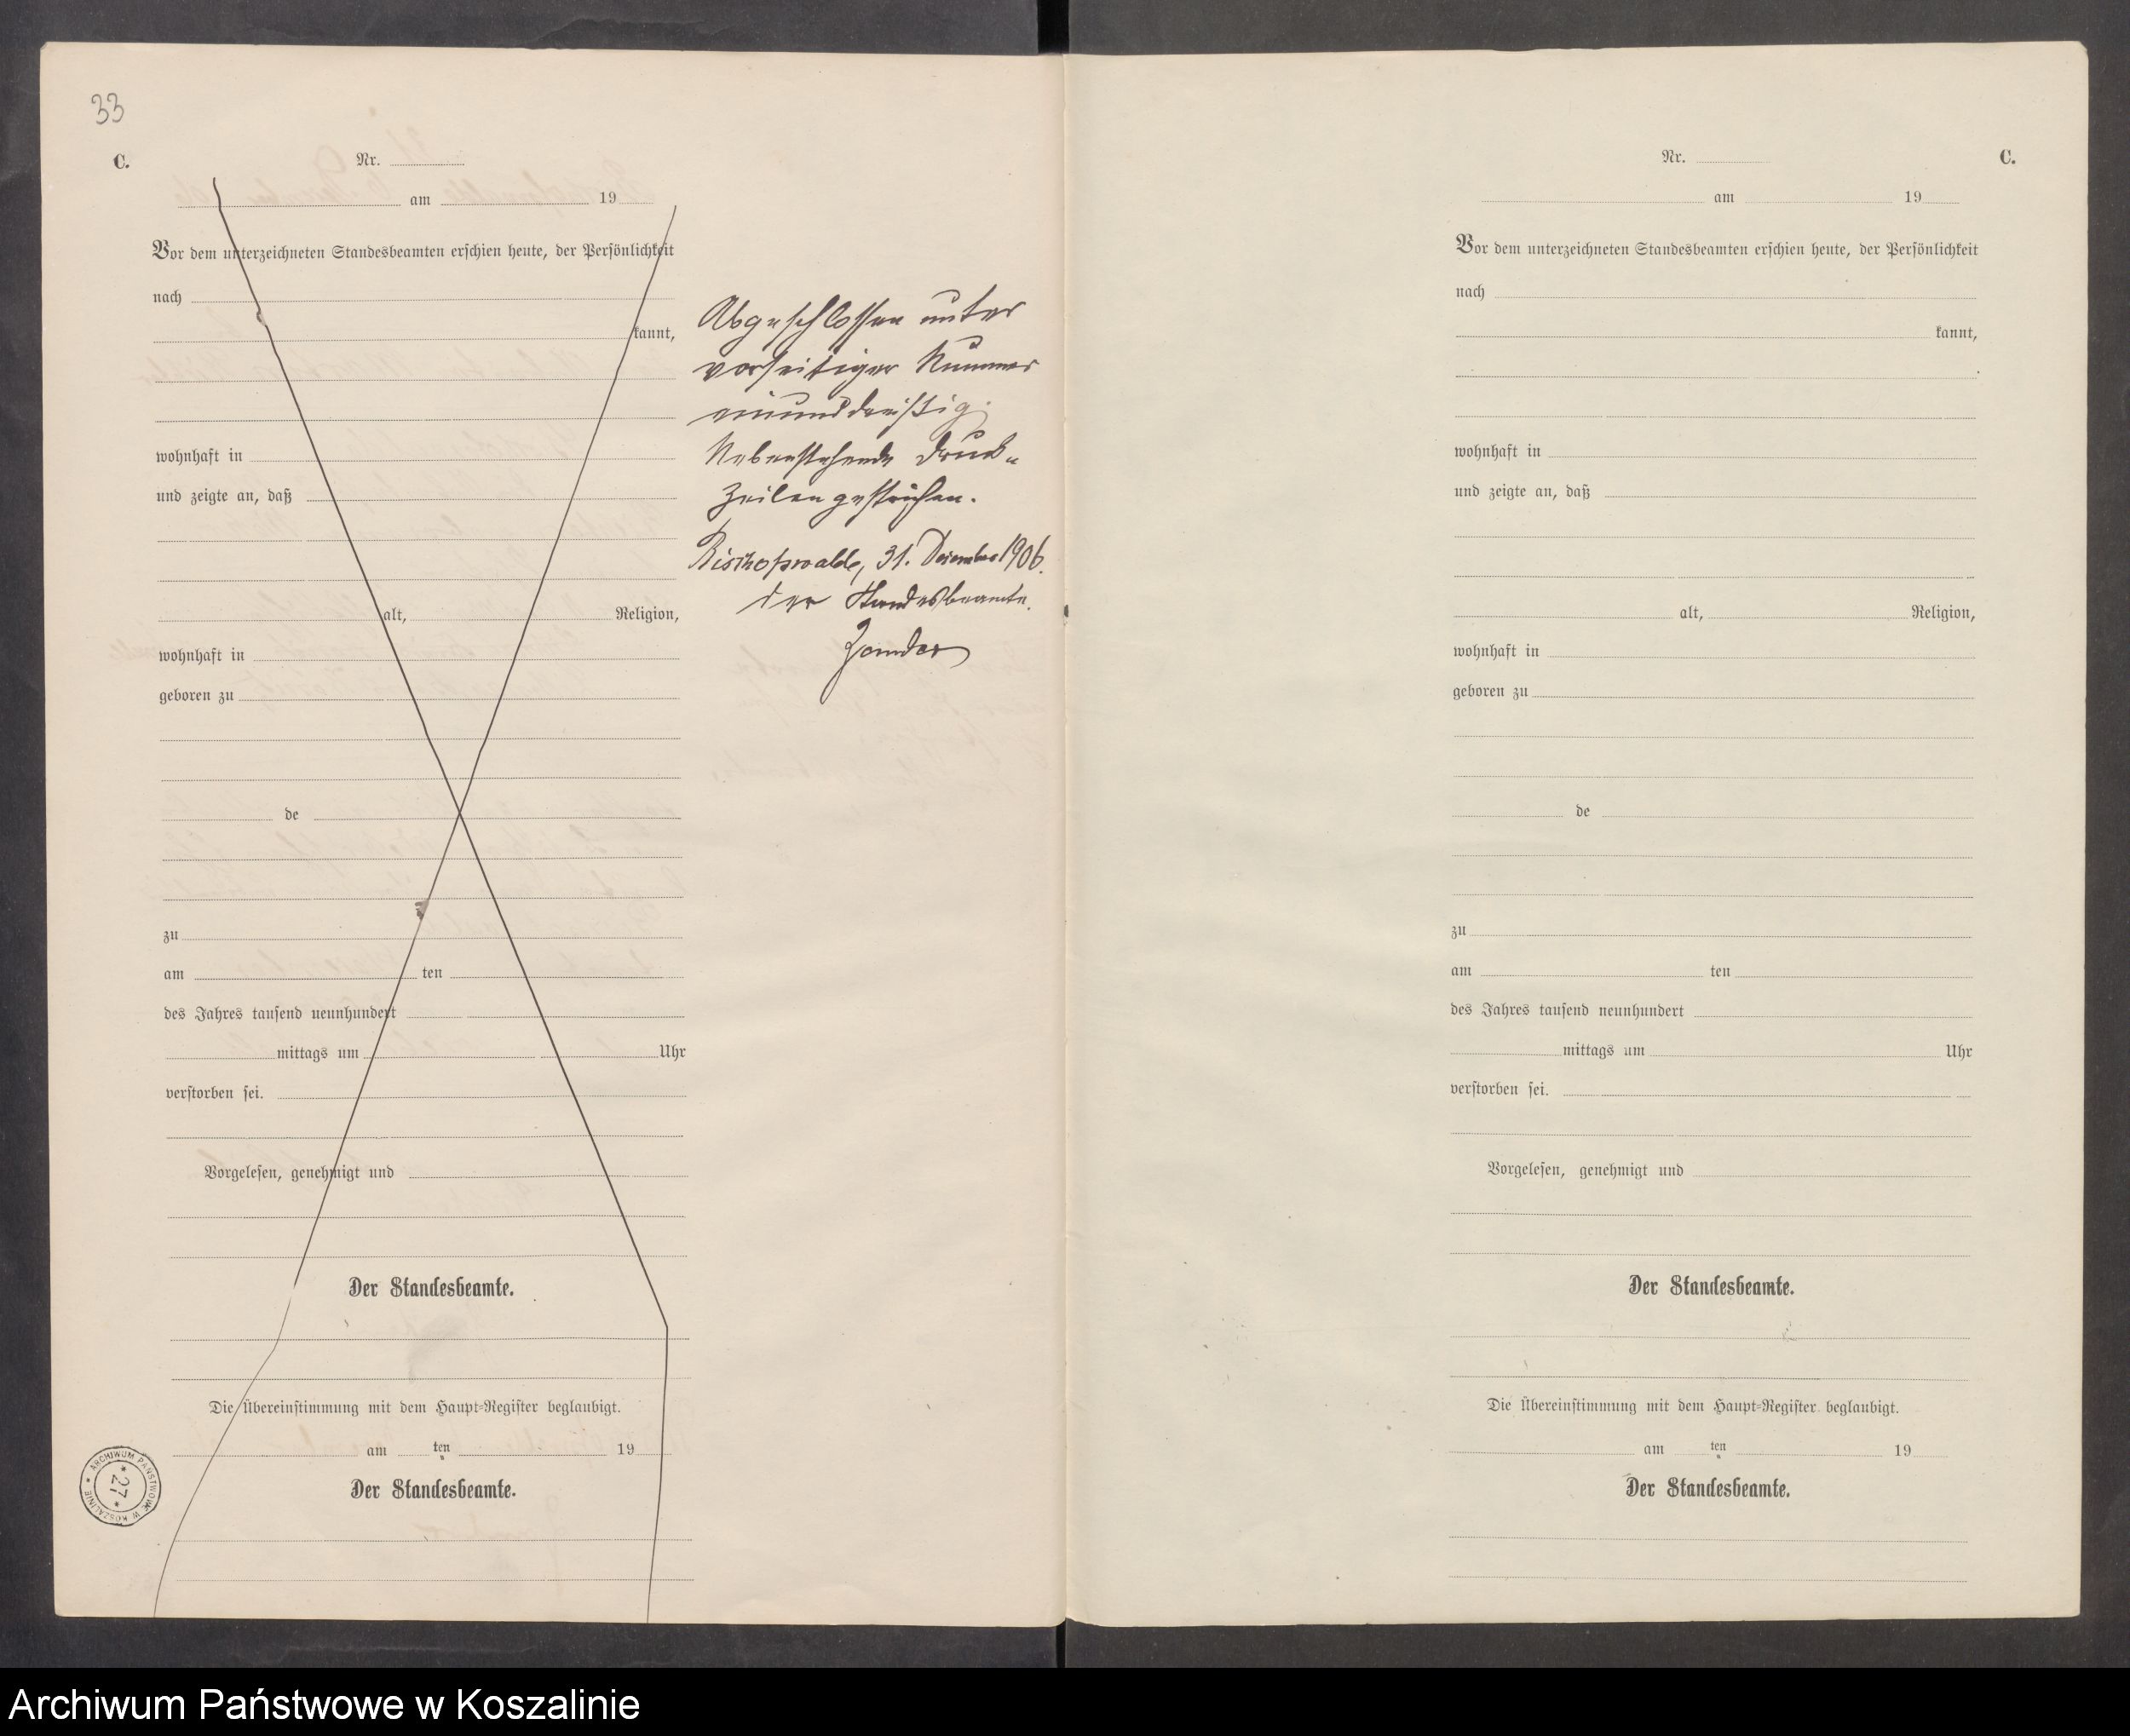 33
C.
Nr.
am 19
Vor dem unterzeichneten Standesbeamten erschien heute, der Persönlichkeit
nach
kannt,
wohnhaft in
und zeigte an, daß
alt, Religion,
wohnhaft in
geboren zu
de
zu
am ten
des Jahres tausend neunhundert
mittags um Uhr
verstorben sei.
Vorgelesen, genehmigt und
Der Standesbeamte.
Die Übereinstimmung mit dem Haupt-Register beglaubigt.
am ten 19
Der Standesbeamte.
Abgeschlossen unter
vorseitiger Nummer
einunddreißig.
Nebenstehende Druck-
zeilen gestrichen.
Bischofswalde, 31. Dezember 1906.
der Standesbeamte.
Zander
ARCHIWUM PAŃSTWOWE W KOSZALINIE
* 27 *
Nr.
C.
am 19
Vor dem unterzeichneten Standesbeamten erschien heute, der Persönlichkeit
nach
kannt,
wohnhaft in
und zeigte an, daß
alt, Religion,
wohnhaft in
geboren zu
de
zu
am ten
des Jahres tausend neunhundert
mittags um Uhr
verstorben sei.
Vorgelesen, genehmigt und
Der Standesbeamte.
Die Übereinstimmung mit dem Haupt-Register beglaubigt.
am ten 19
Der Standesbeamte.
Archiwum Państwowe w Koszalinie